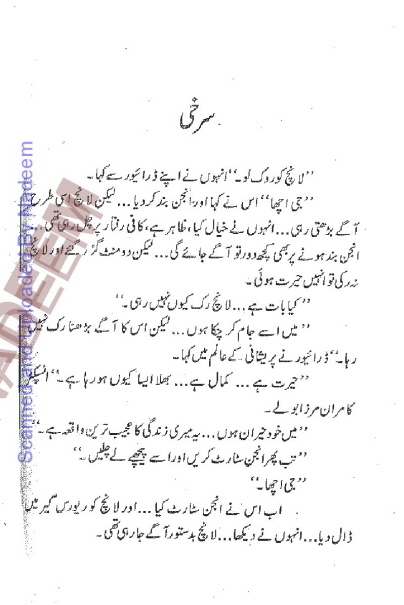 سرخی
"لانچ کو روک لو۔" انہوں نے اپنے ڈرائیور سے کہا۔
"جی اچھا" اس نے کہا اور انجن بند کر دیا... لیکن لانچ اسی طرح
آگے بڑھتی رہی... انہوں نے خیال کیا، ظاہر ہے، کافی رفتار پر چل رہی تھی
انجن بند ہونے پر بھی کچھ دور تو آگے جائے گی... لیکن دو منٹ گزر گئے اور لانچ
نہ رکی تو انہیں حیرت ہوئی۔
"کیا بات ہے... لانچ رک کیوں نہیں رہی۔"
"میں اسے جام کر چکا ہوں... لیکن اس کا آگے بڑھنا رک نہیں
رہا۔" ڈرائیور نے پریشانی کے عالم میں کہا۔
"حیرت ہے... کمال ہے... بھلا ایسا کیوں ہو رہا ہے۔" انسپکٹر
کامران مرزا بولے۔
"میں خود حیران ہوں... یہ میری زندگی کا عجیب ترین واقعہ ہے۔"
"تب پھر انجن سٹارٹ کریں اور اسے پیچھے لے چلیں۔"
"جی اچھا۔"
اب اس نے انجن سٹارٹ کیا... اور لانچ کو ریورس گیر میں
ڈال دیا... انہوں نے دیکھا... لانچ بدستور آگے جا رہی تھی۔
Scanned and Uploaded By Nadeem
NADEEM